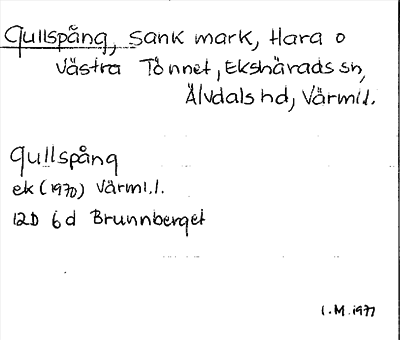 Gullspång, Sank mark, Hara o
Västra Tönnet, Ekshärads sn,
Älvdals hd, Värml.
Gullspång
ek (1970) Värml.l.
12D 6d Brunnberget
I.M. 1977